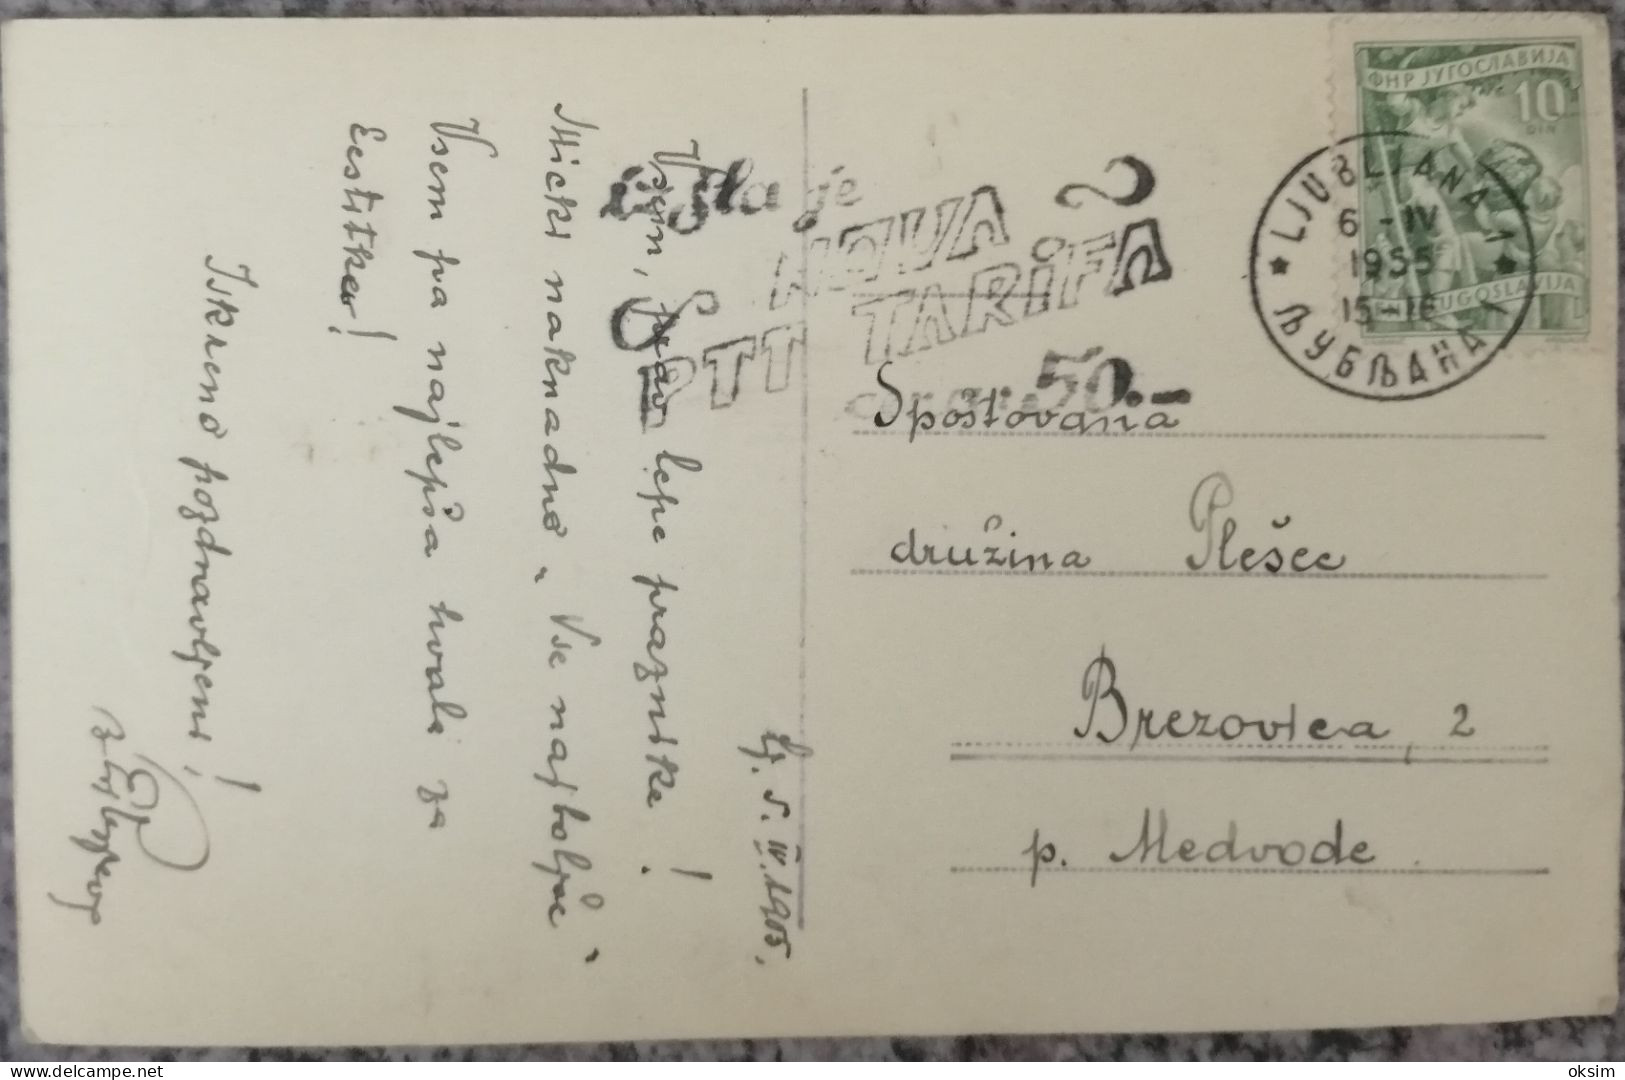 Lj. 5. IV. 1955.
Vsem, prav lepe praznike!
Micki naknadno "Vse najboljše"
Vsem pa najlepša hvala za
čestitke!
Iskreno pozdravljeni!
Izšla je
NOVA
PTT TARIFA
Cena 50.-
LJUBLJANA 1
6 -IV
1955
15-16
ЉУБЉАНА 1
ФНР ЈУГОСЛАВИЈА
10
DIN
FNR JUGOSLAVIJA
Spoštovana
družina Plešec
Brezovica, 2
p. Medvode.
delcampe.net
oksim